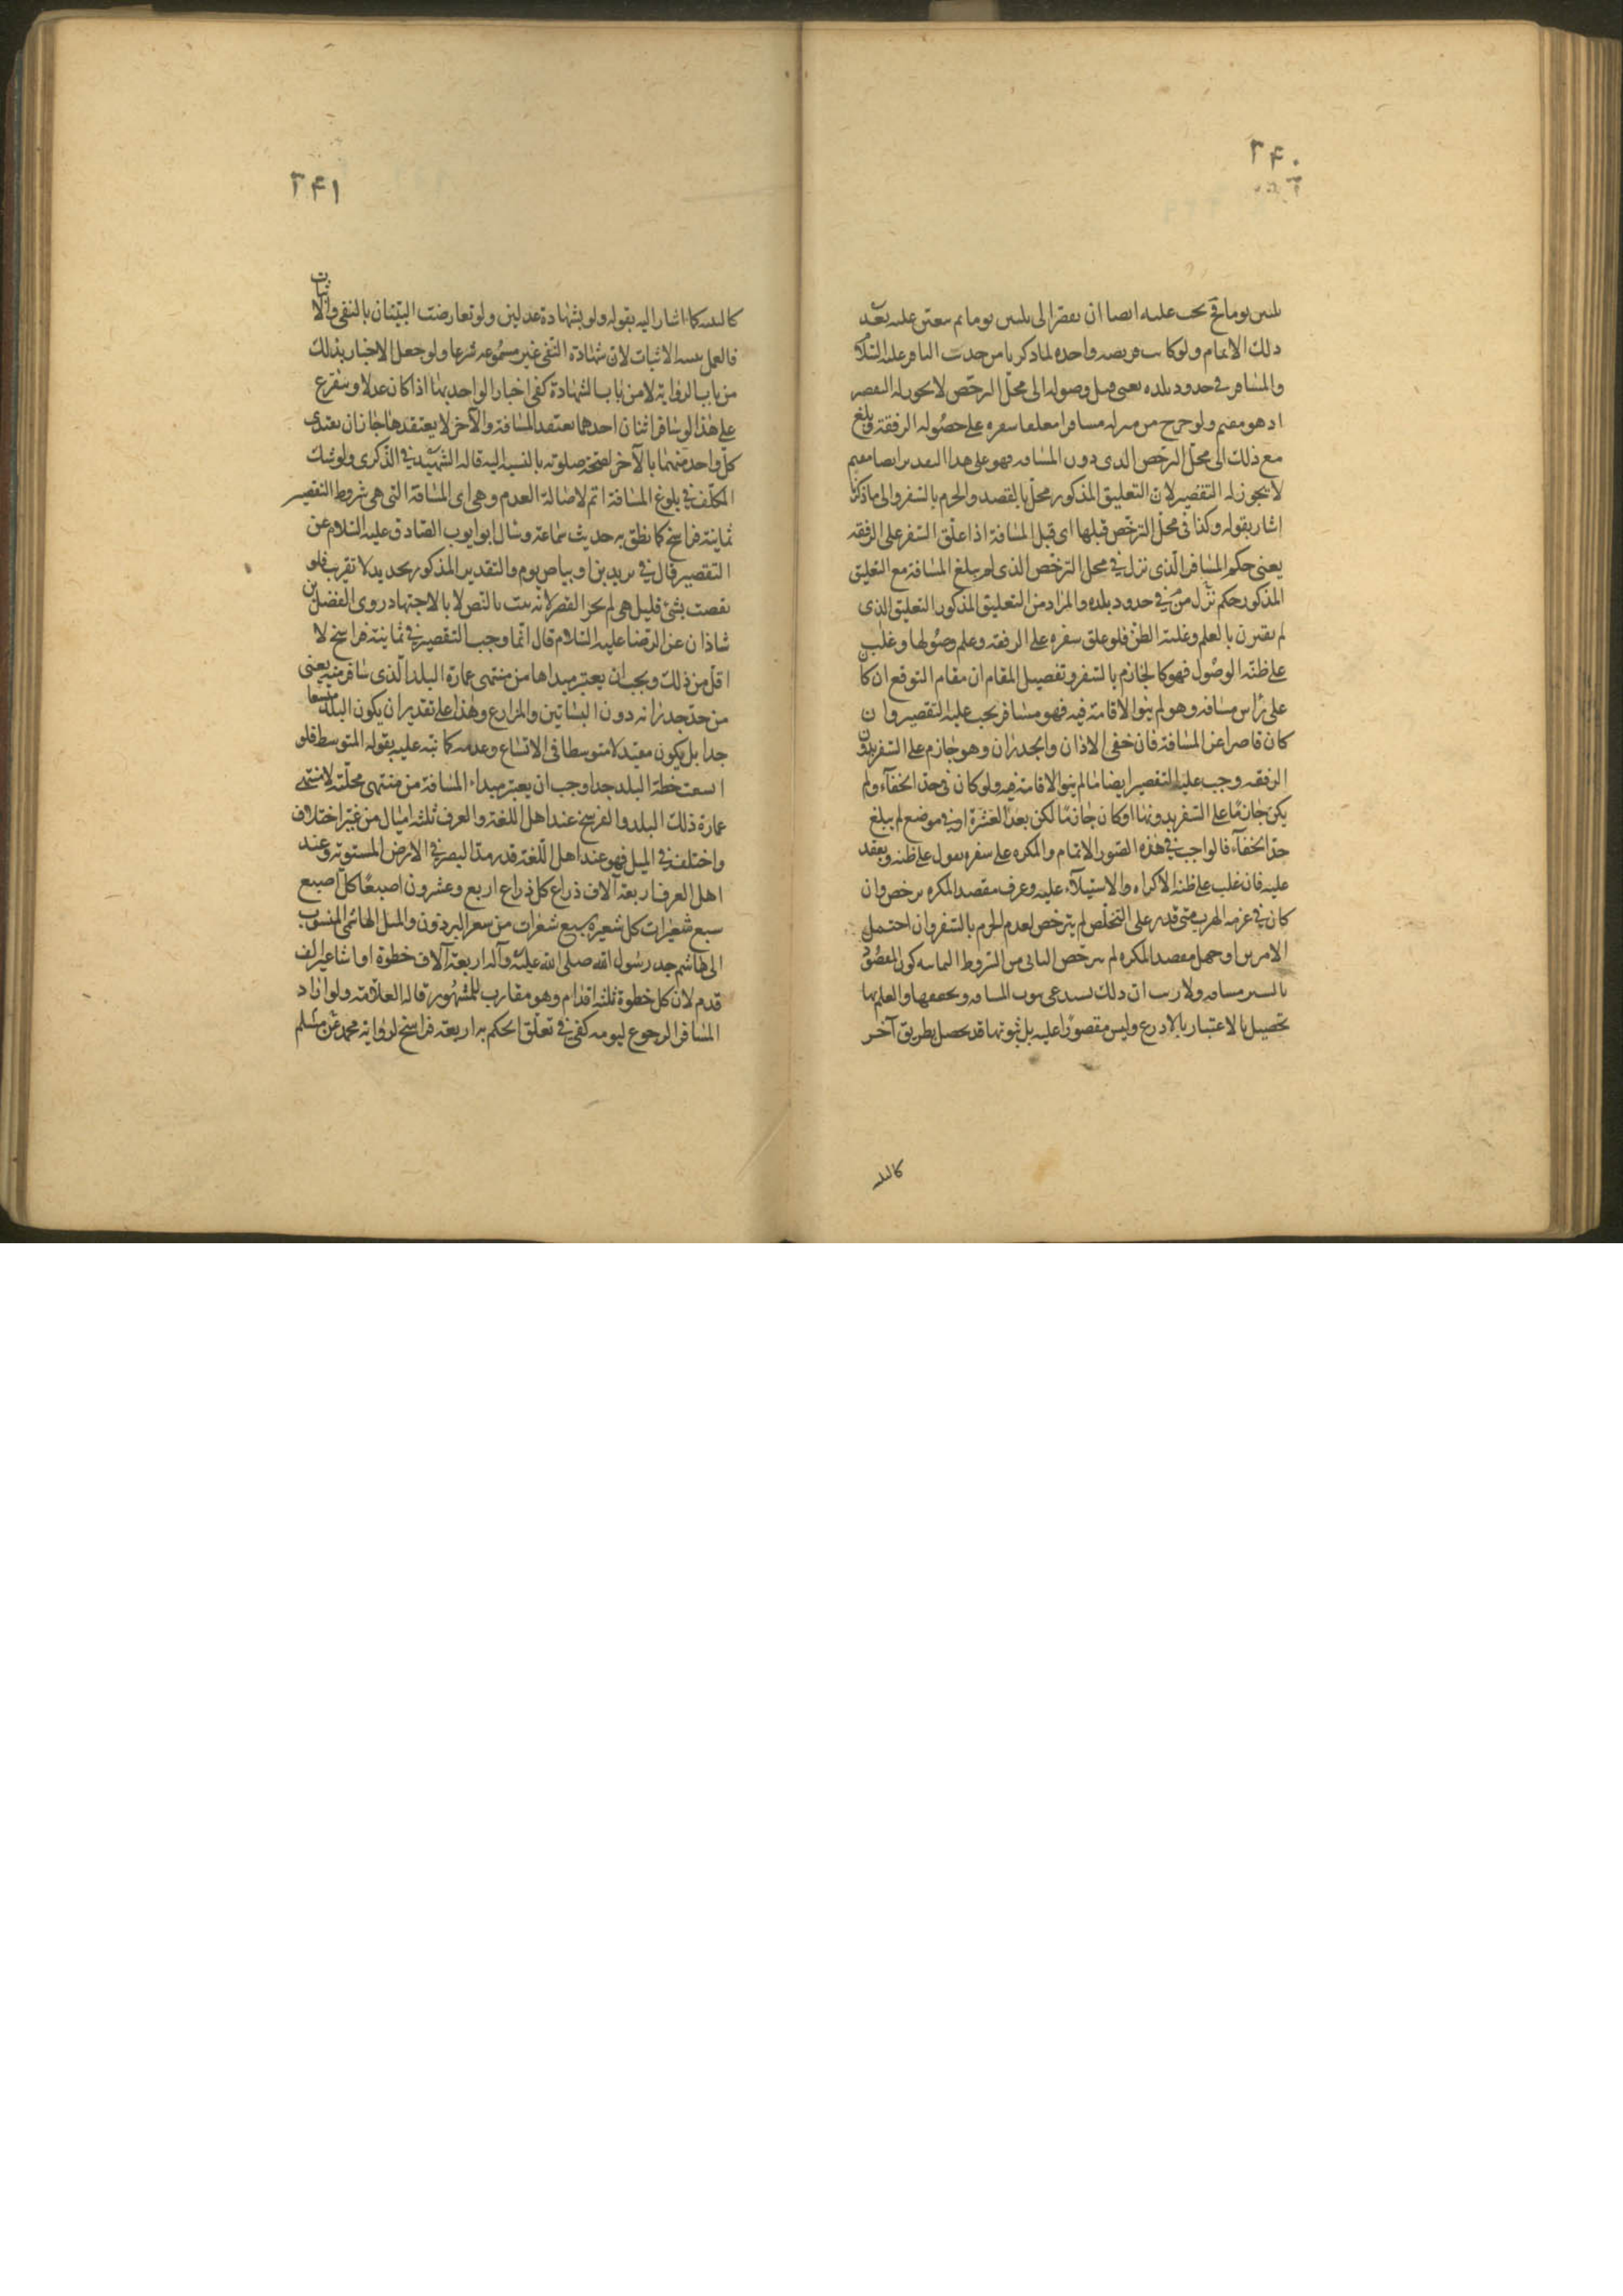 ۲۴۰
ثلثين يوما فح يجب عليه ايضا ان يقصر الى ثلثين يوما ثم يتعين عليه بعد
ذلك الاتمام ولو كانت فريضة واحدة لما ذكرنا من حديث الباقر عليه السلام
والمسافر في حدود بلده يعنى قبل وصوله الى محل الترخص لا يجوز له التقصير
اذ هو مقيم ولو خرج من منزله مسافرا معلقا سفره على حصوله الرفقة وبلغ
مع ذلك الى محل الترخص الذى دون المسافة فهو على هذا التقدير ايضا مقيم
لا يجوز له التقصير لان التعليق المذكور مخل بالقصد والجزم بالسفر والى ما ذكرنا
اشار بقوله وكذا فى محل الترخص قبلها اى قبل المسافة اذا علق السفر على الرفقة
يعنى حكم المسافر الذى نزل في محل الترخص الذى لم يبلغ المسافة مع التعليق
المذكور حكم من نزل في حدود بلده والمراد من التعليق المذكور التعليق الذى
لم يقترن بالعلم وغلبة الظن فلو علق سفره على الرفقة وعلم وصولها وغلب
على ظنه الوصول فهو كالجازم بالسفر وتفصيل المقام ان مقام التوقع ان كا
على راس مسافة وهو لم ينو الاقامة فيه فهو مسافر يجب عليه التقصير وان
كان قاصرا عن المسافة فان خفى الاذان والجدران وهو جازم على السفر بدون
الرفقة وجب عليه التقصير ايضا ما لم ينو الاقامة فيه ولو كان فى حد الخفآء ولم
يكن جازما على السفر بدونها او كان جازما لكن بعد العشرة او في موضع لم يبلغ
حد الخفآء فالواجب في هذه الصور الاتمام والمكره على سفره يعول على ظنه ويعقد
عليه فان غلب على ظنه الاكراه والاستيلآء عليه وعرف مقصد المكره ترخص وان
كان في عزمه الهرب متى قدر على التخلص لم يترخص لعدم الجزم بالسفر وان احتمل
الامرين او جهل مقصد المكره لم يترخص الثانى من الشروط الثمانية كون المقصود
بالسير مسافة ولا ريب ان ذلك يستدعى ثبوت المسافة وتحققها والعلم بها
تحصيل بالاعتبار بالادرع وليس مقصورا عليه بل ثبوتها قد يحصل بطريق آخر
۲۴۱
كالبينة كما اشار اليه بقوله ولو بشهادة عدلين ولو تعارضت البينتان بالنفى والاثبات
فالعمل ببينة الاثبات لان شهادة النفى غير مسموعة شرعا ولو جعل الاخبار بذلك
من باب الرواية لا من باب الشهادة كفى اخبار الواحد بها اذا كان عدلا ويتفرع
على هذا لو سافر اثنان احدهما يعتقد المسافة والآخر لا يعتقدها جاز ان يقتدى
كل واحد منهما بالآخر لصحة صلوته بالنسبة اليه قاله الشهيد في الذكرى ولو شك
المكلف في بلوغ المسافة اتم لاصالة العدم وهى اى المسافة التى هى شروط التقصير
ثمانية فراسخ كما نطق به حديث سماعة وسال ابو ايوب الصادق عليه السلام عن
التقصير قال في بريدين او بياض يوم والتقدير المذكور تحديد لا تقريب فلو
نقصت بشئ قليل هى لم يجز القصر لانه يثبت بالنص لا بالاجتهاد روى الفضل بن
شاذان عن الرضا عليه السلام قال انما وجب التقصير في ثمانية فراسخ لا
اقل من ذلك ويجب ان يعتبر مبداها من منتهى عمارة البلد الذى سافر منه يعنى
من حد جدرانه دون البساتين والمزارع وهذا على تقدير ان يكون البلد متسعا
جدا بل يكون مقتيد لا متوسطا فى الاتساع وعدمه كما نبه عليه بقوله المتوسط فلو
اتسعت خطة البلد جدا وجب ان يعتبر مبداء المسافة من منتهى محلته لا منتهى
عمارة ذلك البلد والفرسخ عند اهل اللغة والعرف ثلثة اميال من غير اختلاف
واختلف في الميل فهو عند اهل اللغة قدر مدّ البصر في الارض المستوية وعند
اهل العرف اربعة آلاف ذراع كل ذراع اربع وعشرون اصبعا كل اصبع
سبع شعيرات كل شعيرة سبع شعرات من شعر البرذون والميل الهاشمى المنسوب
الى هاشم جد رسول الله صلى الله عليه وآله اربعة آلاف خطوة او اثنا عشر الف
قدم لان كل خطوة ثلثة اقدام وهو مقارب للمشهور قاله العلامة ولو اراد
المسافر الرجوع ليومه كفى في تعلق الحكم به اربعة فراسخ لرواية محمد بن مسلم